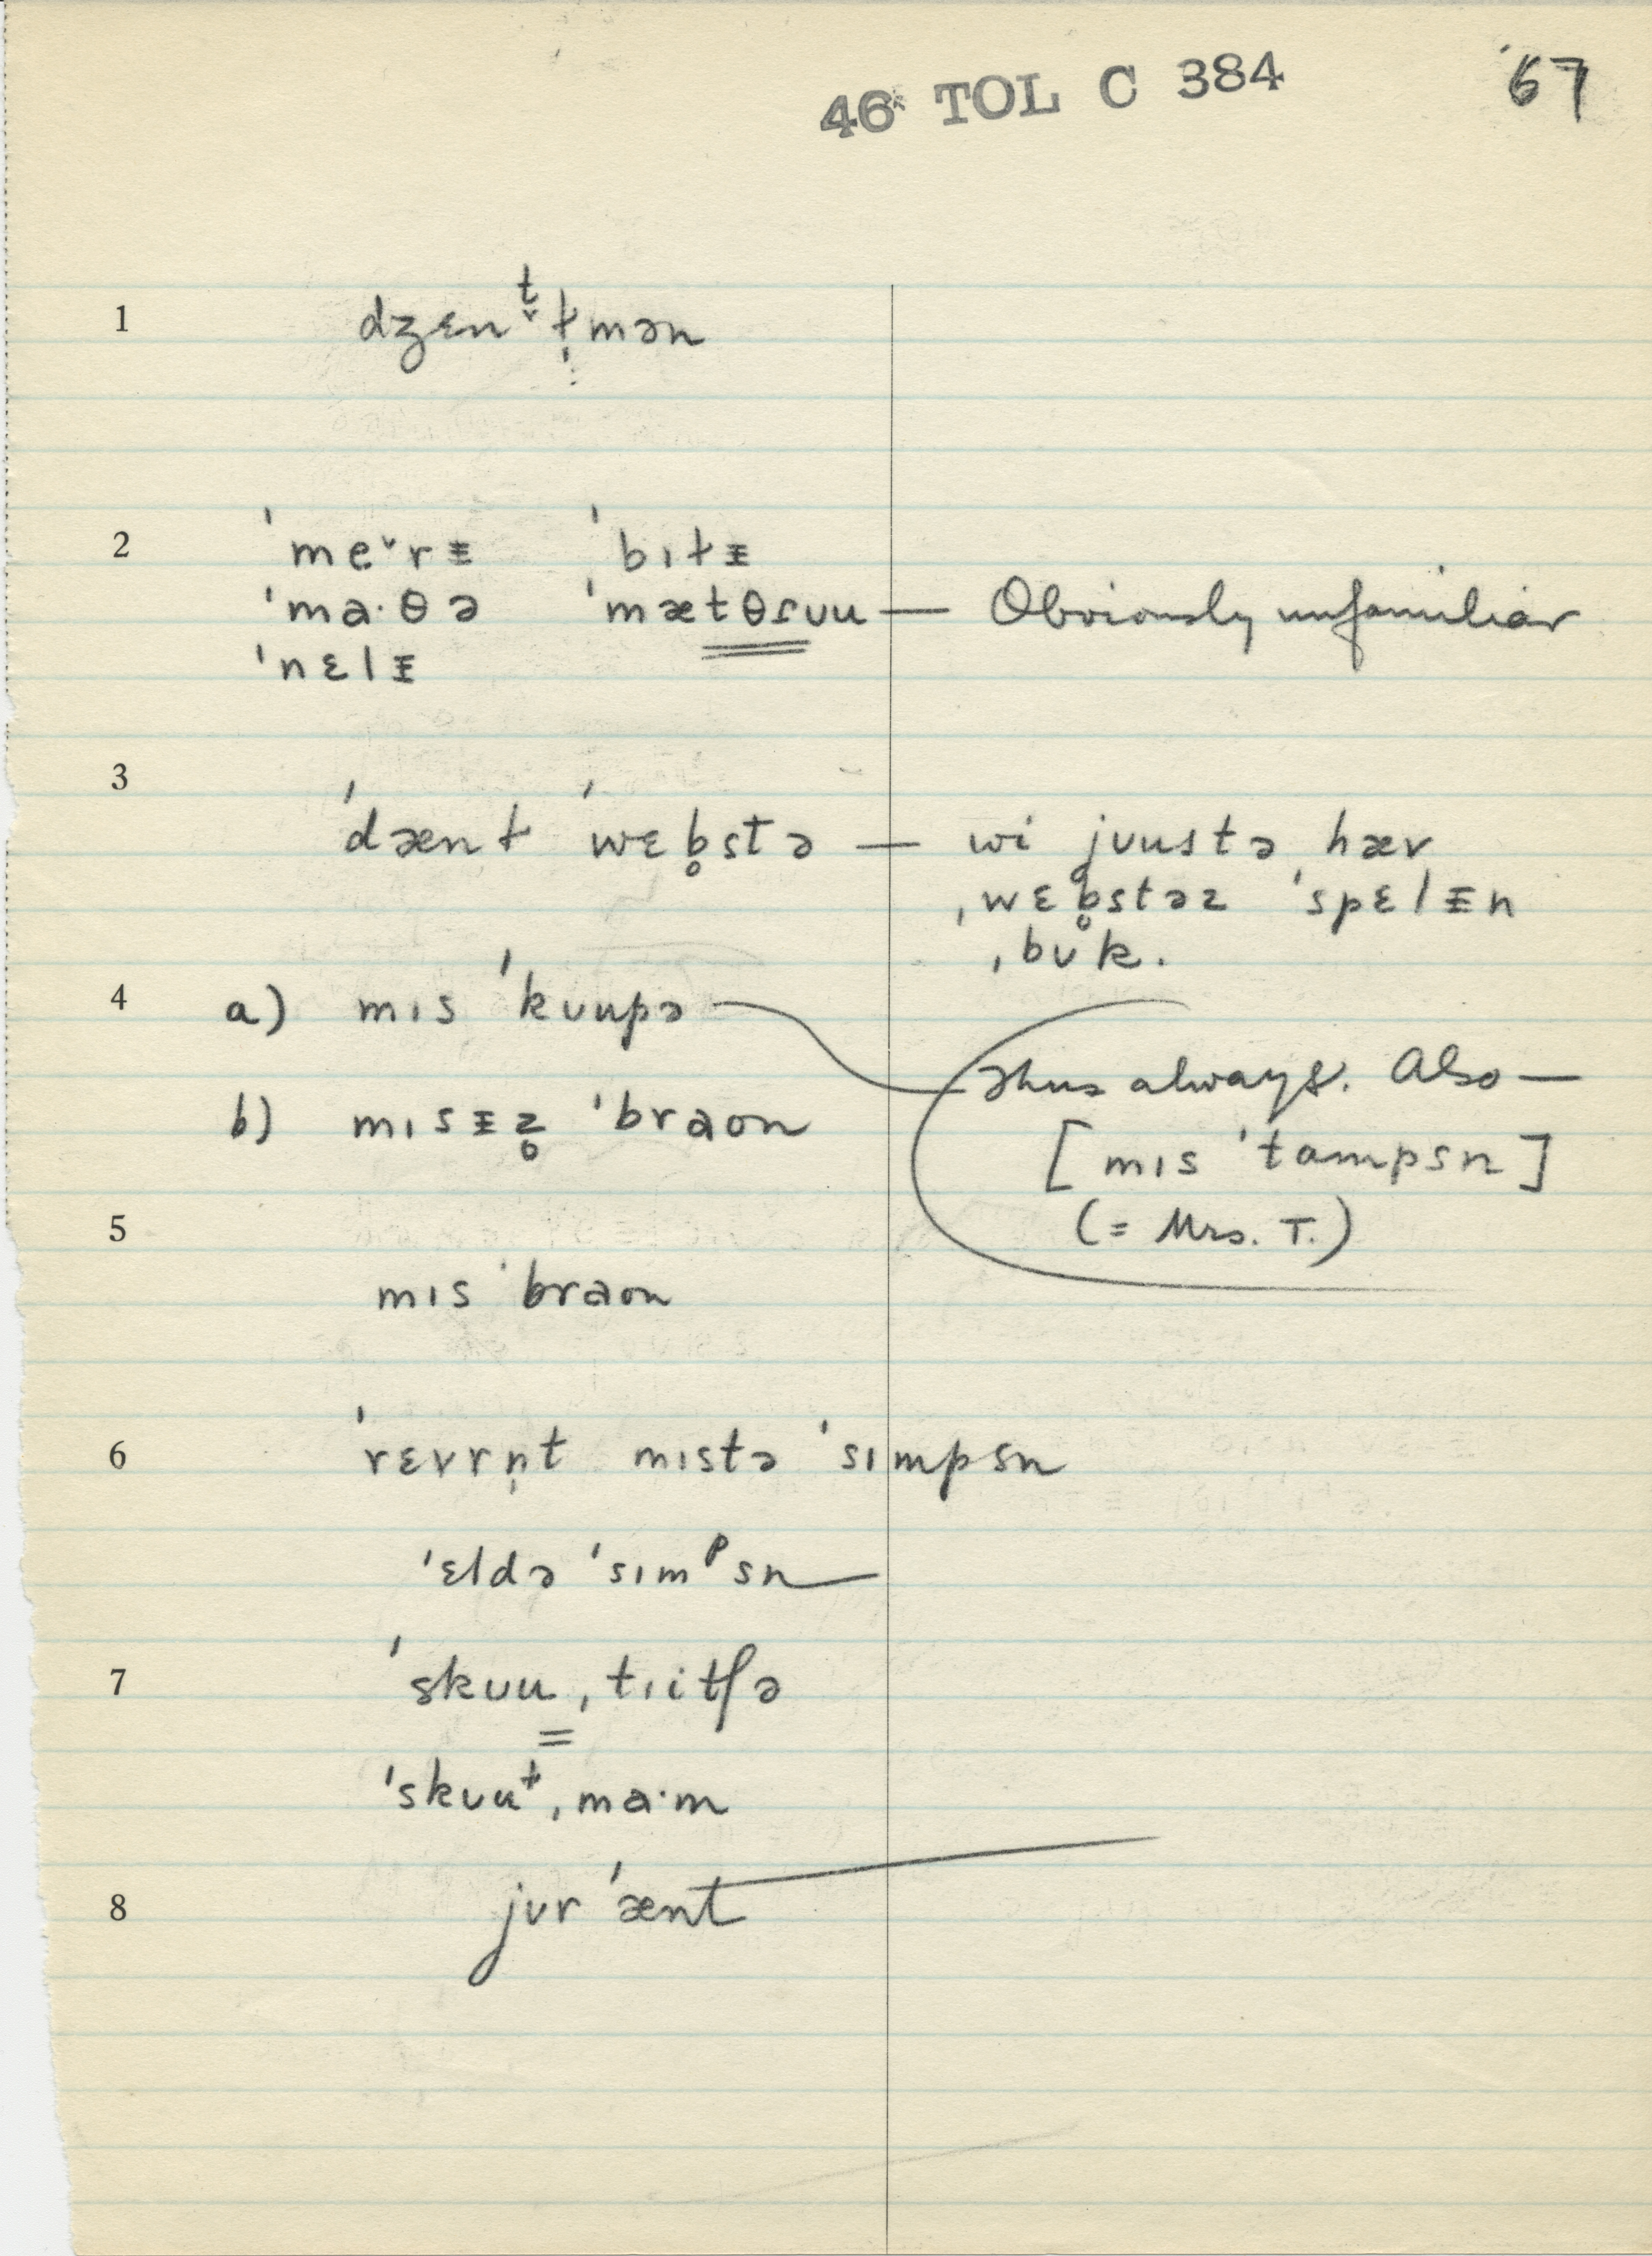 46 TOL C 384 '67
1 dʒɛnt̬ɫ̩mən
2 ˈme˅rᵻ ˈbɪɫᵻ
ˈma·θə ˈmætθɪʊu — Obviously unfamiliar
ˈnɛlᵻ
3 ˈdænɫ ˈwɛb̥stə — wi jʊustə hæv
ˌwɛb̥stəz ˈspɛlᵻn
ˌbʊk.
4 a) mɪs ˈkʊupə
Thus always. Also —
b) mɪsᵻz̥ ˈbraʊn
[mɪs ˈtampsn]
(= Mrs. T.)
5 mɪs ˈbraʊn
6 ˈrɛvrn̩t mɪstə ˈsɪmpsn
ˈɛldə ˈsɪmᵖsn
7 ˈskʊu ˌtɪitʃə
ˈskʊuɫ ˌma·m
8 jʊr ˈænt